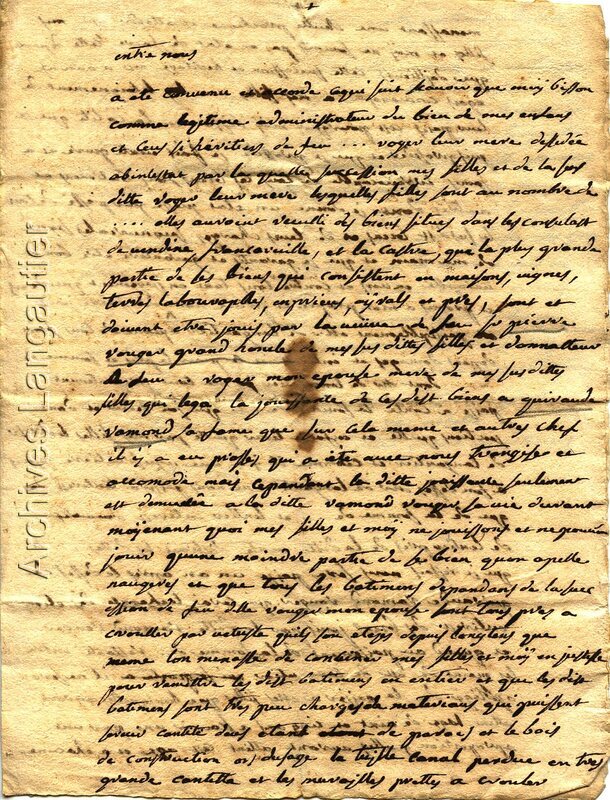 entre nous
a eté convenu et accorde ce qui suit scavoir que moy bisson
comme legitime administrateur du bien de mes enfans
et ceus si héritiers de feu ... voger leur mere decedée
abintestat par la quelle succession mes filles et de la sus
ditte voger leur mere lesquelles filles sont au nombre de
.... elles auroint reculli des biens situes dans les consulast
de vendine francarville, et la castre, que la plus grande
partie de ses biens qui consistent en maisons, vignes,
terres labourables, et prés, sont et
doivent etre jouis par la veuve de feu sr pierre
vouger grand honcle de mes sus dittes filles et donnatteur
de feu voger mon epouse mere de mes sus dittes
filles qui lega la jouissance de ces dest biens a guiraude
ramond sa fame que sur cela meme et autres chef
il i a eu prosses qui a eté avec nous transigé et
accomode mais cependant la ditte jouissance seulement
est demurée a la ditte ramond vouger sa vie durant
moyenant quoi mes filles et moy ne jouissons et ne pouvons
jouir quune moindre partie de le bien quon apelle
naugeres et que tous les batimens dependans de la suc
ession de feu delle vouger mon epouse sont tous pres a
croutter par vetusté quils son etages depuis longtens que
meme lon menasse de combiner mes filles et moy en justise
pour remettre les dist batimens en entier et que les dist
batimens sont tres peu charges de materiaus qui puissent
servir cantité deus etant de paroes et le bois
de construction ors dusage la tujlle canal perdue en tres
grande cantetta et les murajlles prettes a crouler
Archives Langautier